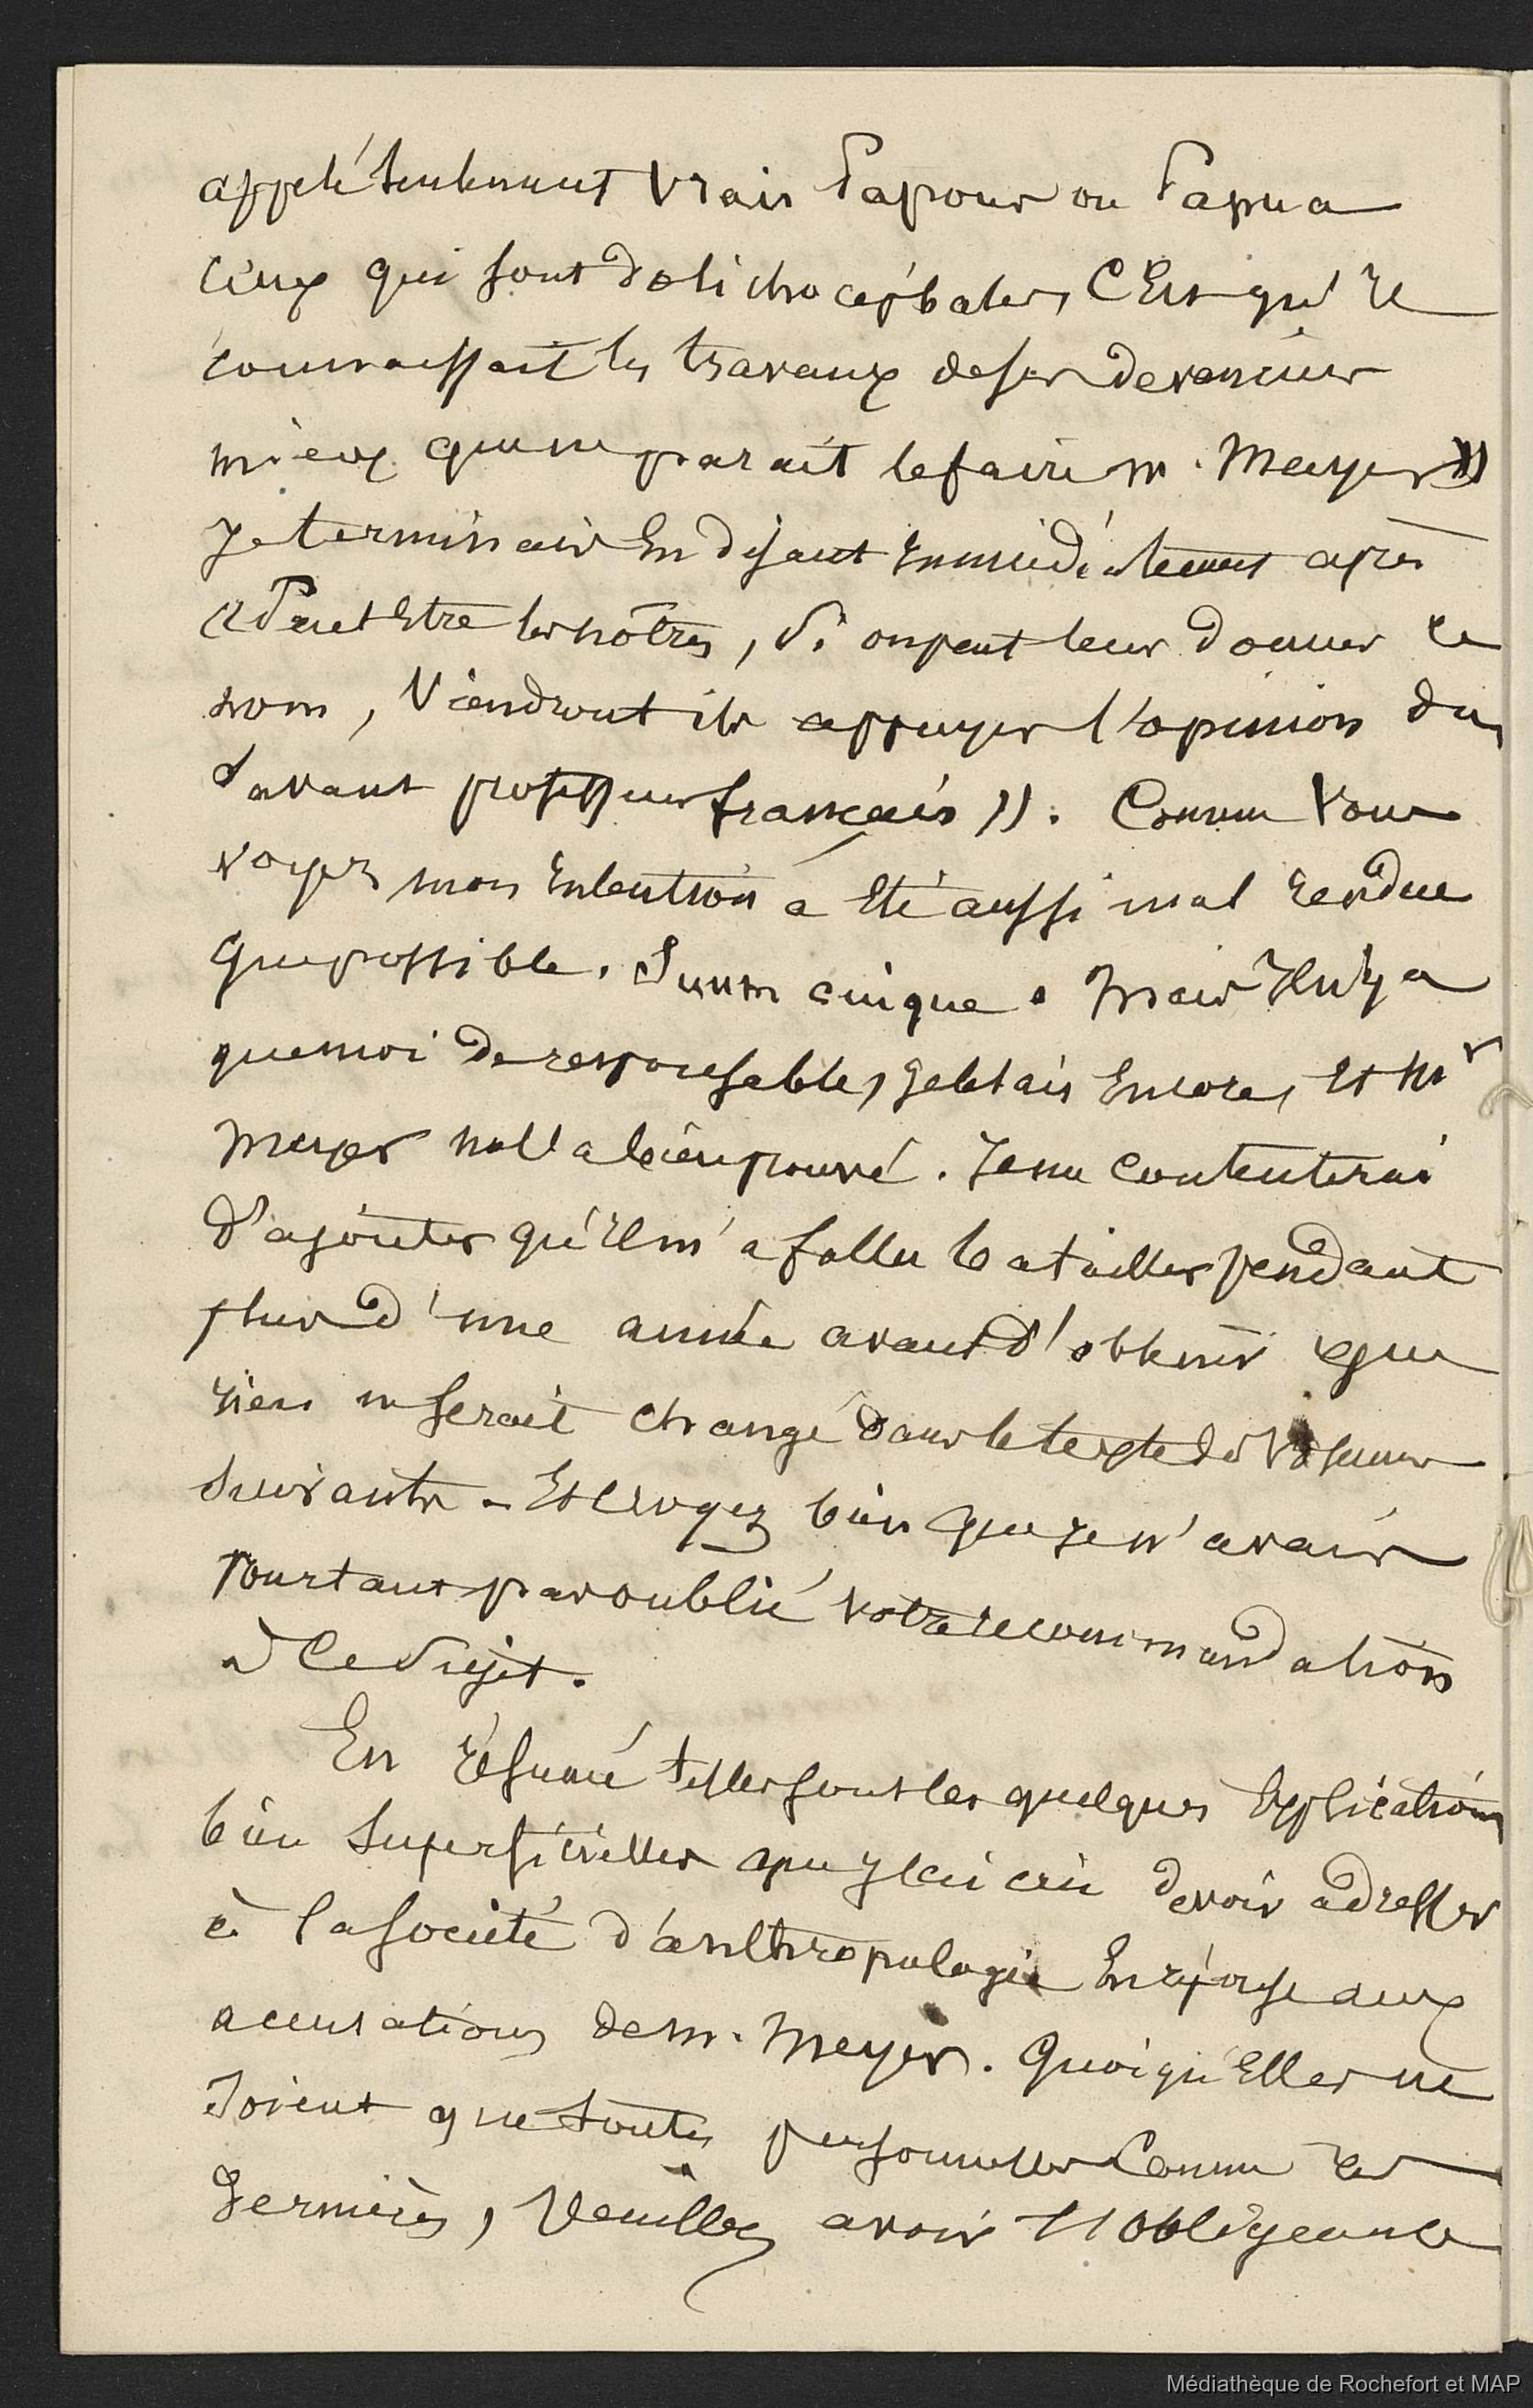 appelé seulement vrais Papous ou Papua
ceux qui sont dolichocéphales, c'est qu'il
connaissait les travaux de ses devanciers
mieux que ne paraît le faire M. Meyer »
Je terminais en disant immédiatement après
« Peut être les nôtres, si on peut leur donner ce
nom, viendront ils appuyer l'opinion du
savant professeur français ». Comme vous
voyez mon intention a été aussi mal rendue
que possible. Suum cuique. Mais il n'y a
que moi de responsable, je le sais encore, et Mr
Meyer me l'a bien prouvé. Je me contenterai
d'ajouter qu'il m'a fallu batailler pendant
plus d'une année avant d'obtenir que
rien ne serait changé dans le texte des volumes
suivants. Et croyez bien que je n'avais
pourtant pas oublié votre recommandation
à ce sujet.
En résumé telles sont les quelques explications
bien superficielles que j'ai cru devoir adresser
à la société d'anthropologie en réponse aux
accusations de M. Meyer. Quoiqu'elles ne
soient que toutes personnelles comme ces
dernières, veuillez avoir l'obligeance
Médiathèque de Rochefort et MAP